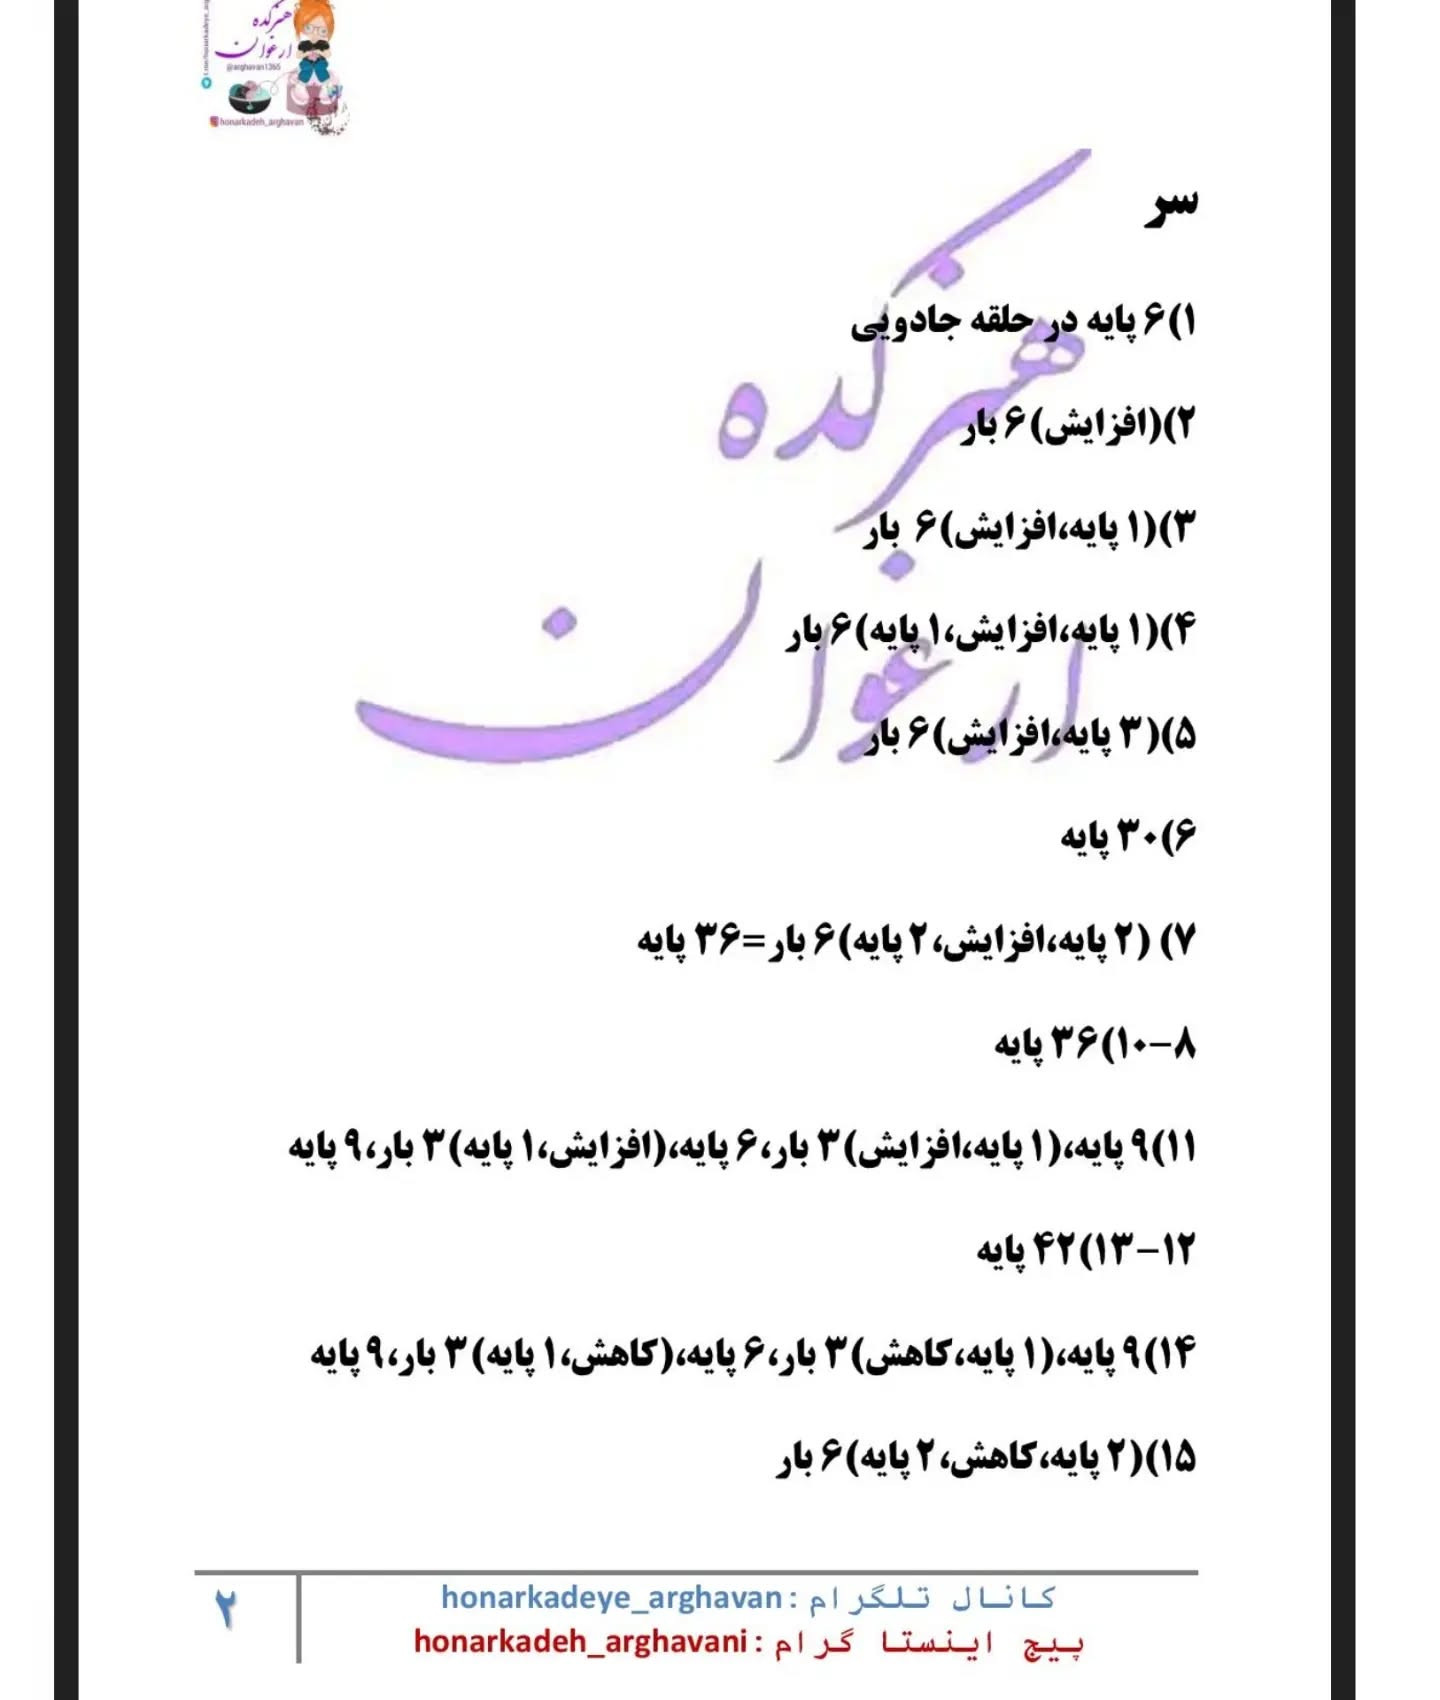 هنرکده
ارغوان
@arghavan1365
honarkadeh_arghavan
سر
۱)۶ پایه در حلقه جادویی
۲)(افزایش)۶ بار
۳)(۱ پایه،افزایش)۶ بار
۴)(۱ پایه،افزایش،۱ پایه)۶ بار
۵)(۳ پایه،افزایش)۶ بار
۶)۳۰ پایه
۷) (۲ پایه،افزایش،۲ پایه)۶ بار=۳۶ پایه
۸-۱۰)۳۶ پایه
۱۱)۹ پایه،(۱ پایه،افزایش)۳ بار،۶ پایه،(افزایش،۱ پایه)۳ بار،۹ پایه
۱۲-۱۳)۴۲ پایه
۱۴)۹ پایه،(۱ پایه،کاهش)۳ بار،۶ پایه،(کاهش،۱ پایه)۳ بار،۹ پایه
۱۵)(۲ پایه،کاهش،۲ پایه)۶ بار
هنرکده
ارغوان
کانال تلگرام : honarkadeye_arghavan
پیج اینستا گرام : honarkadeh_arghavani
۲